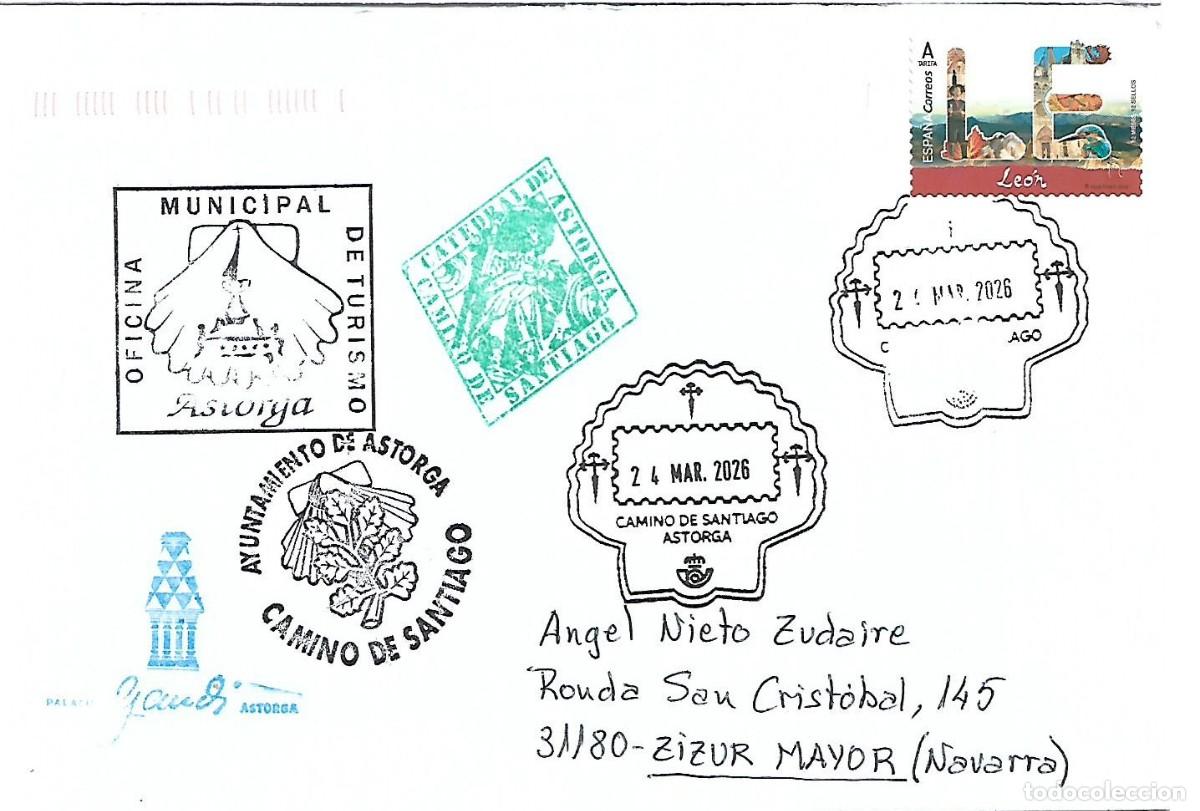 A
TARIFA
ESPAÑA Correos
12 MESES, 12 SELLOS
León
MUNICIPAL
OFICINA
DE TURISMO
Astorga
CATEDRAL DE
ASTORGA
CAMINO DE
SANTIAGO
i
2 MAR. 2026
C AGO
2 4 MAR. 2026
CAMINO DE SANTIAGO
ASTORGA
AYUNTAMIENTO DE ASTORGA
CAMINO DE SANTIAGO
Gaudi
ASTORGA
Angel Nieto Zudaire
Ronda San Cristóbal, 145
31180-ZIZUR MAYOR (Navarra)
todocoleccion